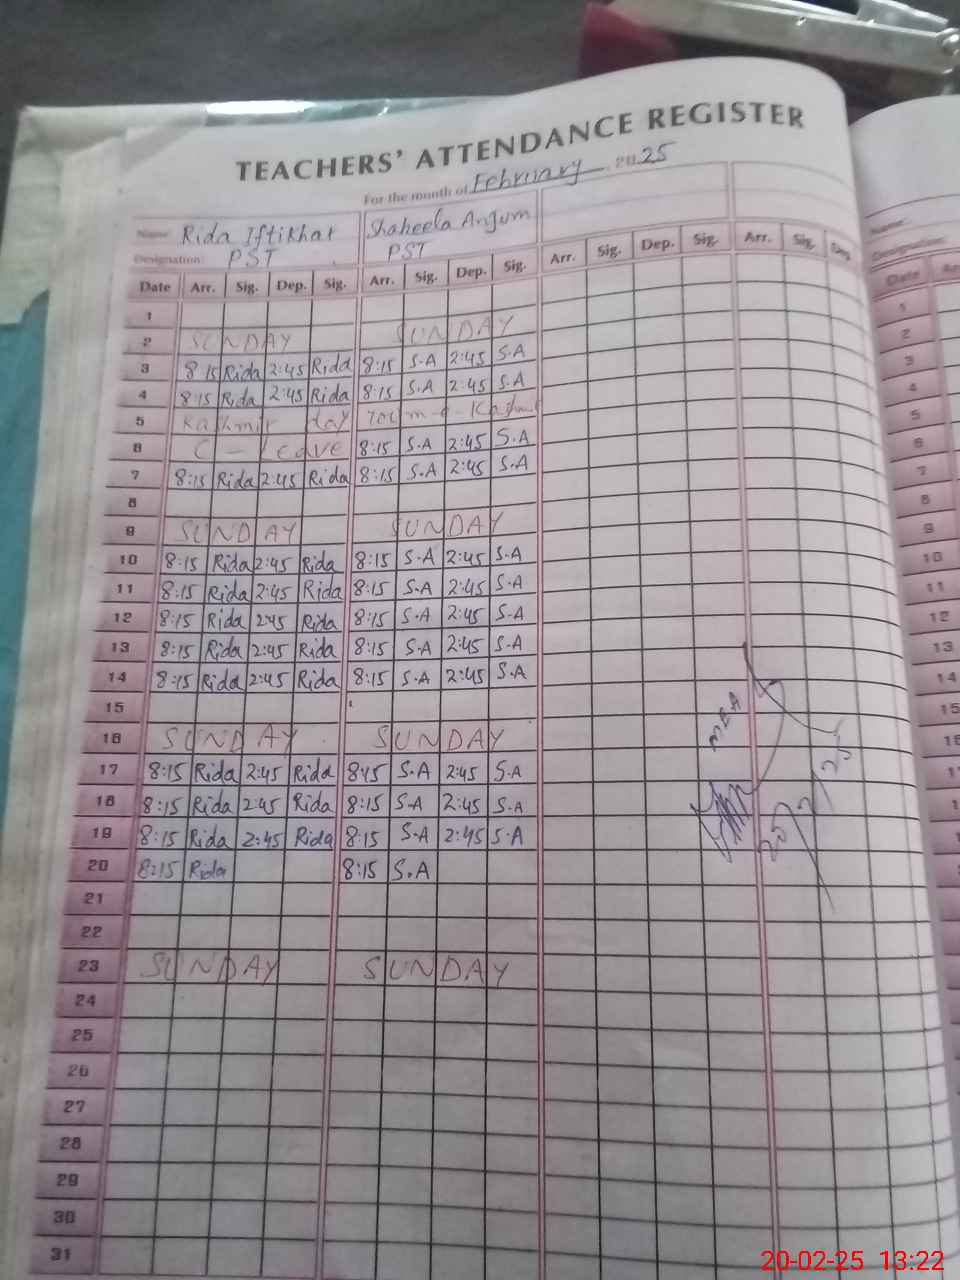 TEACHERS' ATTENDANCE REGISTER
For the month of February 2025
Name: Rida Iftikhar Shaheela Angum
Designation: PST PST
Date Arr. Sig. Dep. Sig. Arr. Sig. Dep. Sig. Arr. Sig. Dep. Sig. Arr. Sig. Dep.
1
2 SUNDAY SUNDAY
3 8:15 Rida 2:45 Rida 8:15 S.A 2:45 S.A
4 8:15 Rida 2:45 Rida 8:15 S.A 2:45 S.A
5 Kashmir day
6 C - leave 8:15 S.A 2:45 S.A
7 8:15 Rida 2:45 Rida 8:15 S.A 2:45 S.A
8
9 SUNDAY SUNDAY
10 8:15 Rida 2:45 Rida 8:15 S.A 2:45 S.A
11 8:15 Rida 2:45 Rida 8:15 S.A 2:45 S.A
12 8:15 Rida 2:45 Rida 8:15 S.A 2:45 S.A
13 8:15 Rida 2:45 Rida 8:15 S.A 2:45 S.A
14 8:15 Rida 2:45 Rida 8:15 S.A 2:45 S.A
15
16 SUNDAY SUNDAY
17 8:15 Rida 2:45 Rida 8:15 S.A 2:45 S.A
18 8:15 Rida 2:45 Rida 8:15 S.A 2:45 S.A
19 8:15 Rida 2:45 Rida 8:15 S.A 2:45 S.A
20 8:15 Rida 8:15 S.A
21
22
23 SUNDAY SUNDAY
24
25
26
27
28
29
30
31
MEA
Name:
Designation:
Date
1
2
3
4
5
6
7
8
9
10
11
12
13
14
15
20-02-25 13:22